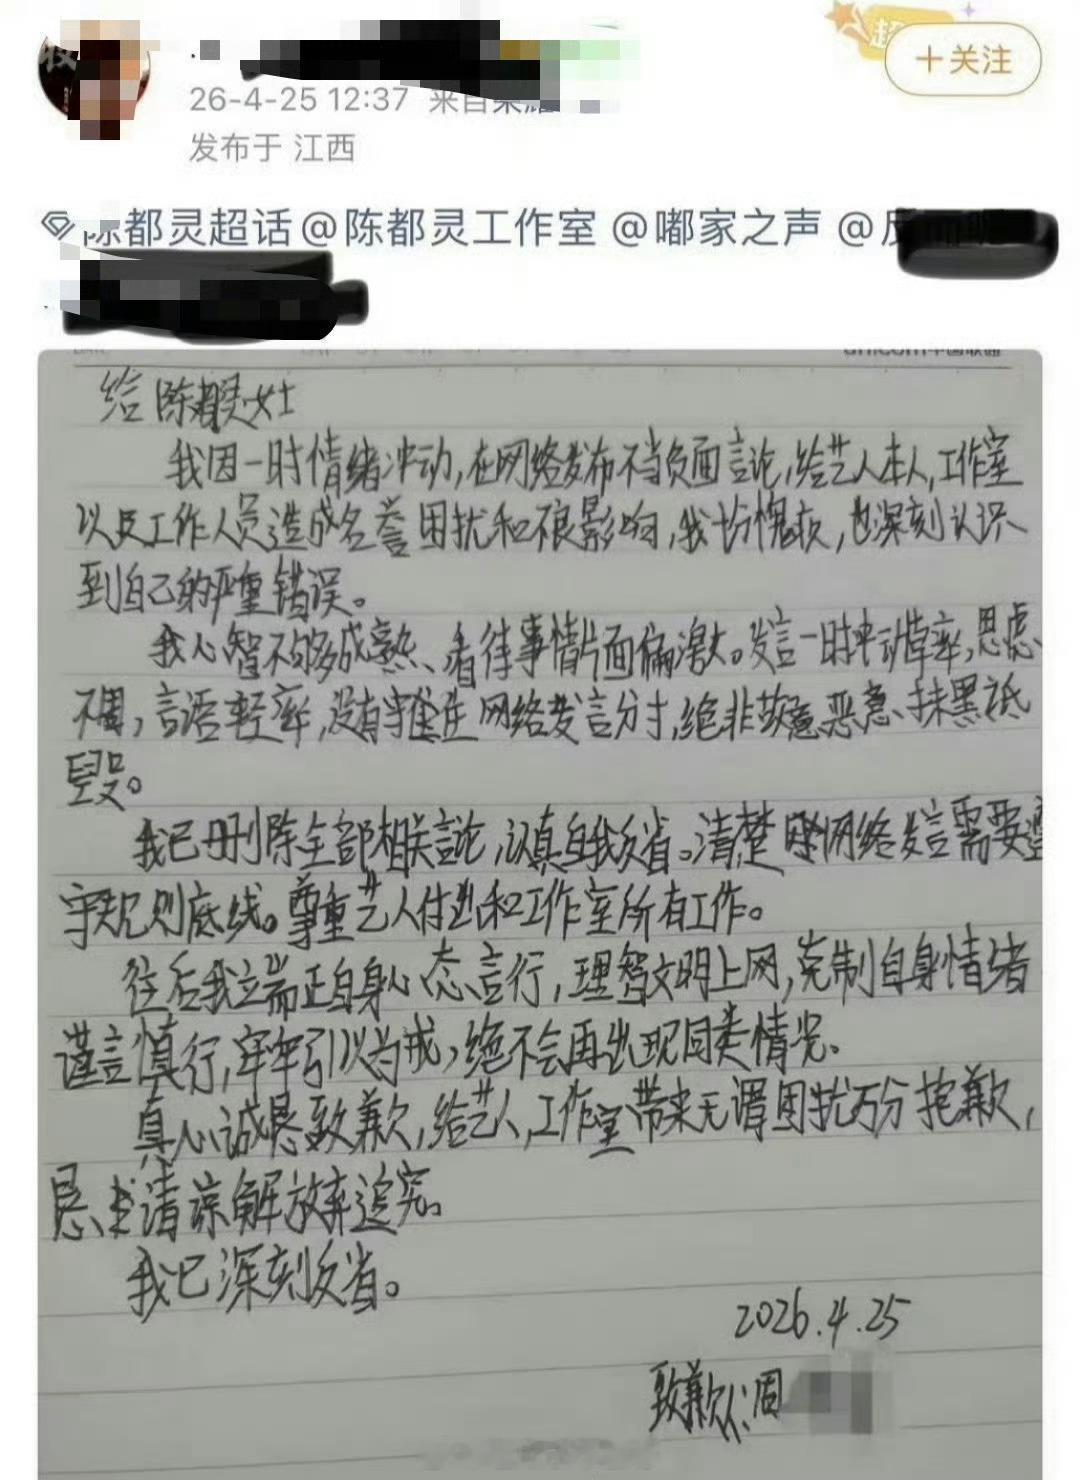 超
十关注
26-4-25 12:37 来自荣耀
发布于 江西
陈都灵超话@陈都灵工作室 @嘟家之声 @反
unicom中国联通
给陈都灵女士
我因一时情绪冲动,在网络发布不当负面言论,给艺人本人,工作室
以及工作人员造成名誉困扰和不良影响,我十分愧疚,也深刻认识
到自己的严重错误。
我心智不够成熟、看待事情片面偏激。发言一时冲动草率,思虑
不周,言语轻率,没有守住网络发言分寸,绝非故意恶意、抹黑诋
毁。
我已删除全部相关言论,认真自我反省。清楚网络发言需要遵
守规则底线。尊重艺人付出和工作室所有工作。
往后我立端正自身心态言行,理智文明上网,克制自身情绪
谨言慎行,牢牢引以为戒,绝不会再出现同类情况。
真心诚恳致歉,给艺人,工作室带来无谓困扰万分抱歉,
恳请谅解放弃追究。
我已深刻反省。
2026.4.25
致歉人:周